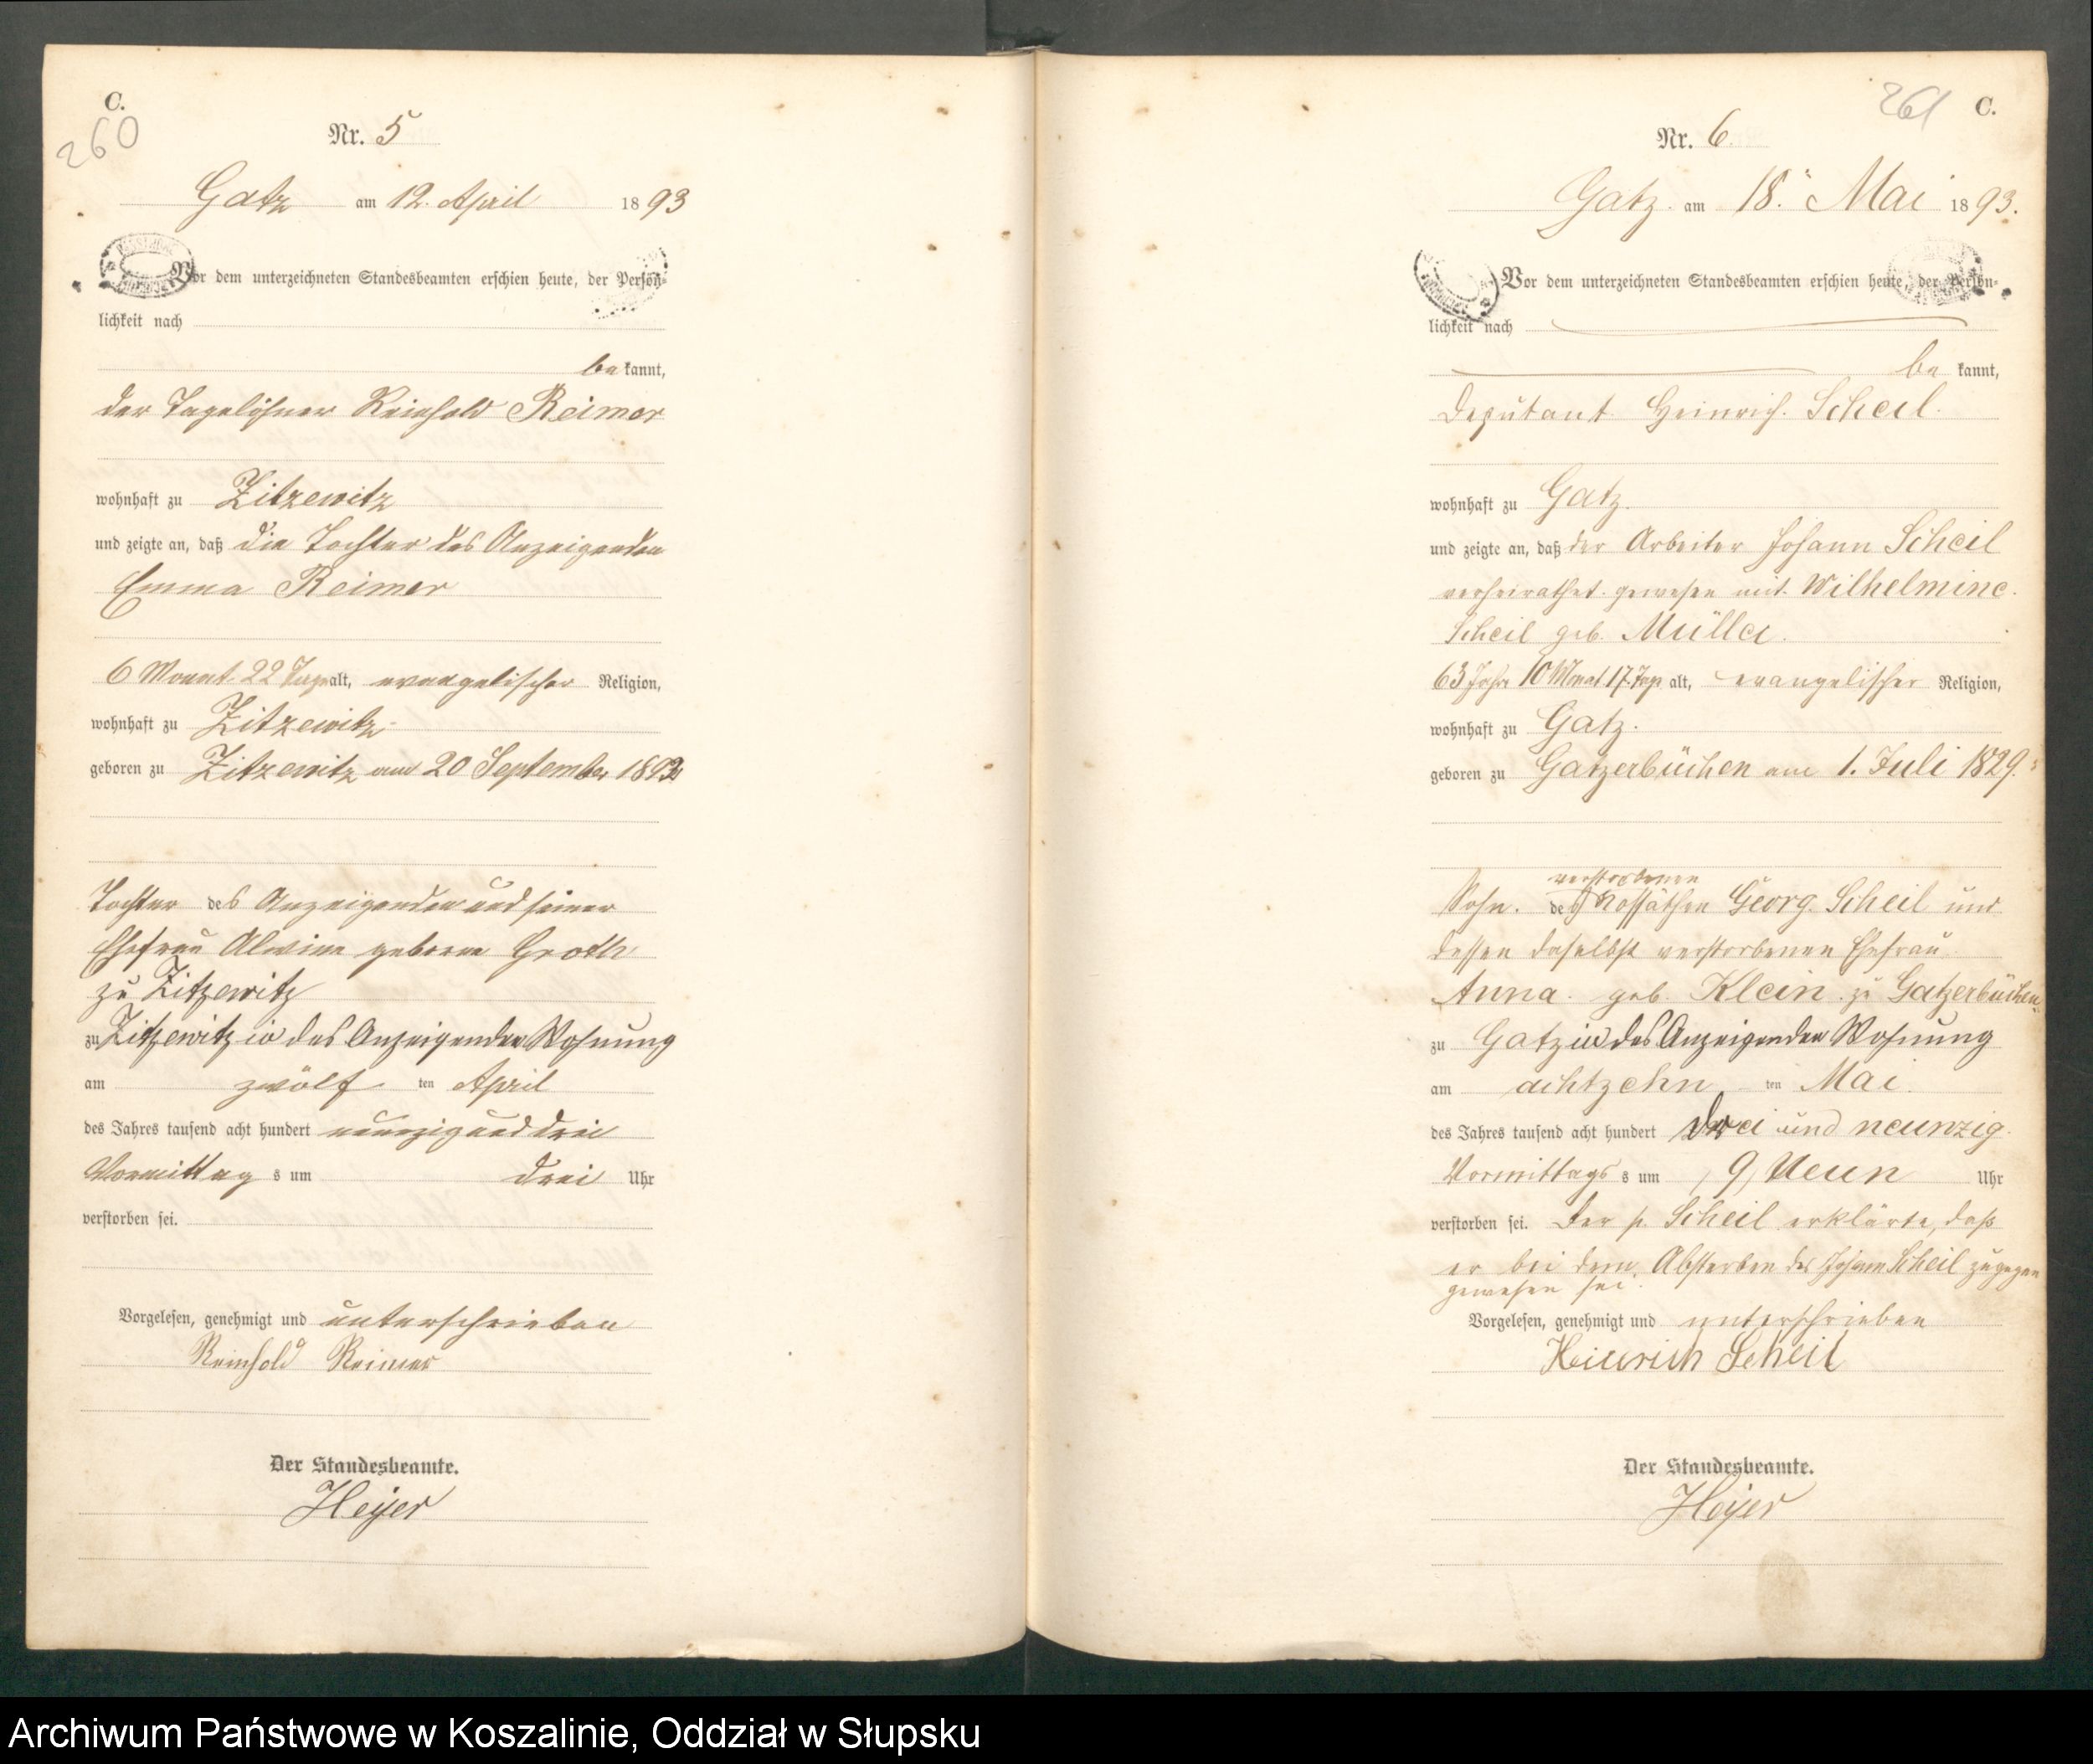 C.
260
Nr. 5
Gatz am 12. April 1893
Vor dem unterzeichneten Standesbeamten erschien heute, der Persön-
lichkeit nach
be kannt,
der Tagelöhner Reinhold Reimer
wohnhaft zu Zitzewitz
und zeigte an, daß die Tochter des Anzeigenden
Emma Reimer
6 Monat 22 Tage alt, evangelischer Religion,
wohnhaft zu Zitzewitz
geboren zu Zitzewitz am 20 September 1892
Tochter des Anzeigenden und seiner
Ehefrau Alwine geborene Groth
zu Zitzewitz
zu Zitzewitz in des Anzeigenden Wohnung
am zwölf ten April
des Jahres tausend acht hundert neunzig und drei
Vormittag s um drei Uhr
verstorben sei.
Vorgelesen, genehmigt und unterschrieben
Reinhold Reimer
Der Standesbeamte.
Heyer
261 C.
Nr. 6
Gatz. am 18. Mai 1893.
Vor dem unterzeichneten Standesbeamten erschien heute, der Persön-
lichkeit nach
be kannt,
Deputant Heinrich Scheil.
wohnhaft zu Gatz.
und zeigte an, daß der Arbeiter Johann Scheil
verheirathet gewesen mit Wilhelmine
Scheil geb. Müller.
63 Jahr 10 Monat 17 Tage alt, evangelischer Religion,
wohnhaft zu Gatz.
geboren zu Gatzerbüchen am 1. Juli 1829.
verstorbenen
Sohn des Kossäthen Georg Scheil und
dessen daselbst verstorbenen Ehefrau
Anna geb. Klein zu Gatzerbüchen
zu Gatz in des Anzeigenden Wohnung
am achtzehn ten Mai.
des Jahres tausend acht hundert drei und neunzig.
Vormittags s um 9, Neun Uhr
verstorben sei. Der p. Scheil erklärte, daß
er bei dem Absterben des Johann Scheil zugegen
gewesen sei.
Vorgelesen, genehmigt und unterschrieben
Heinrich Scheil
Der Standesbeamte.
Heyer
Archiwum Państwowe w Koszalinie, Oddział w Słupsku